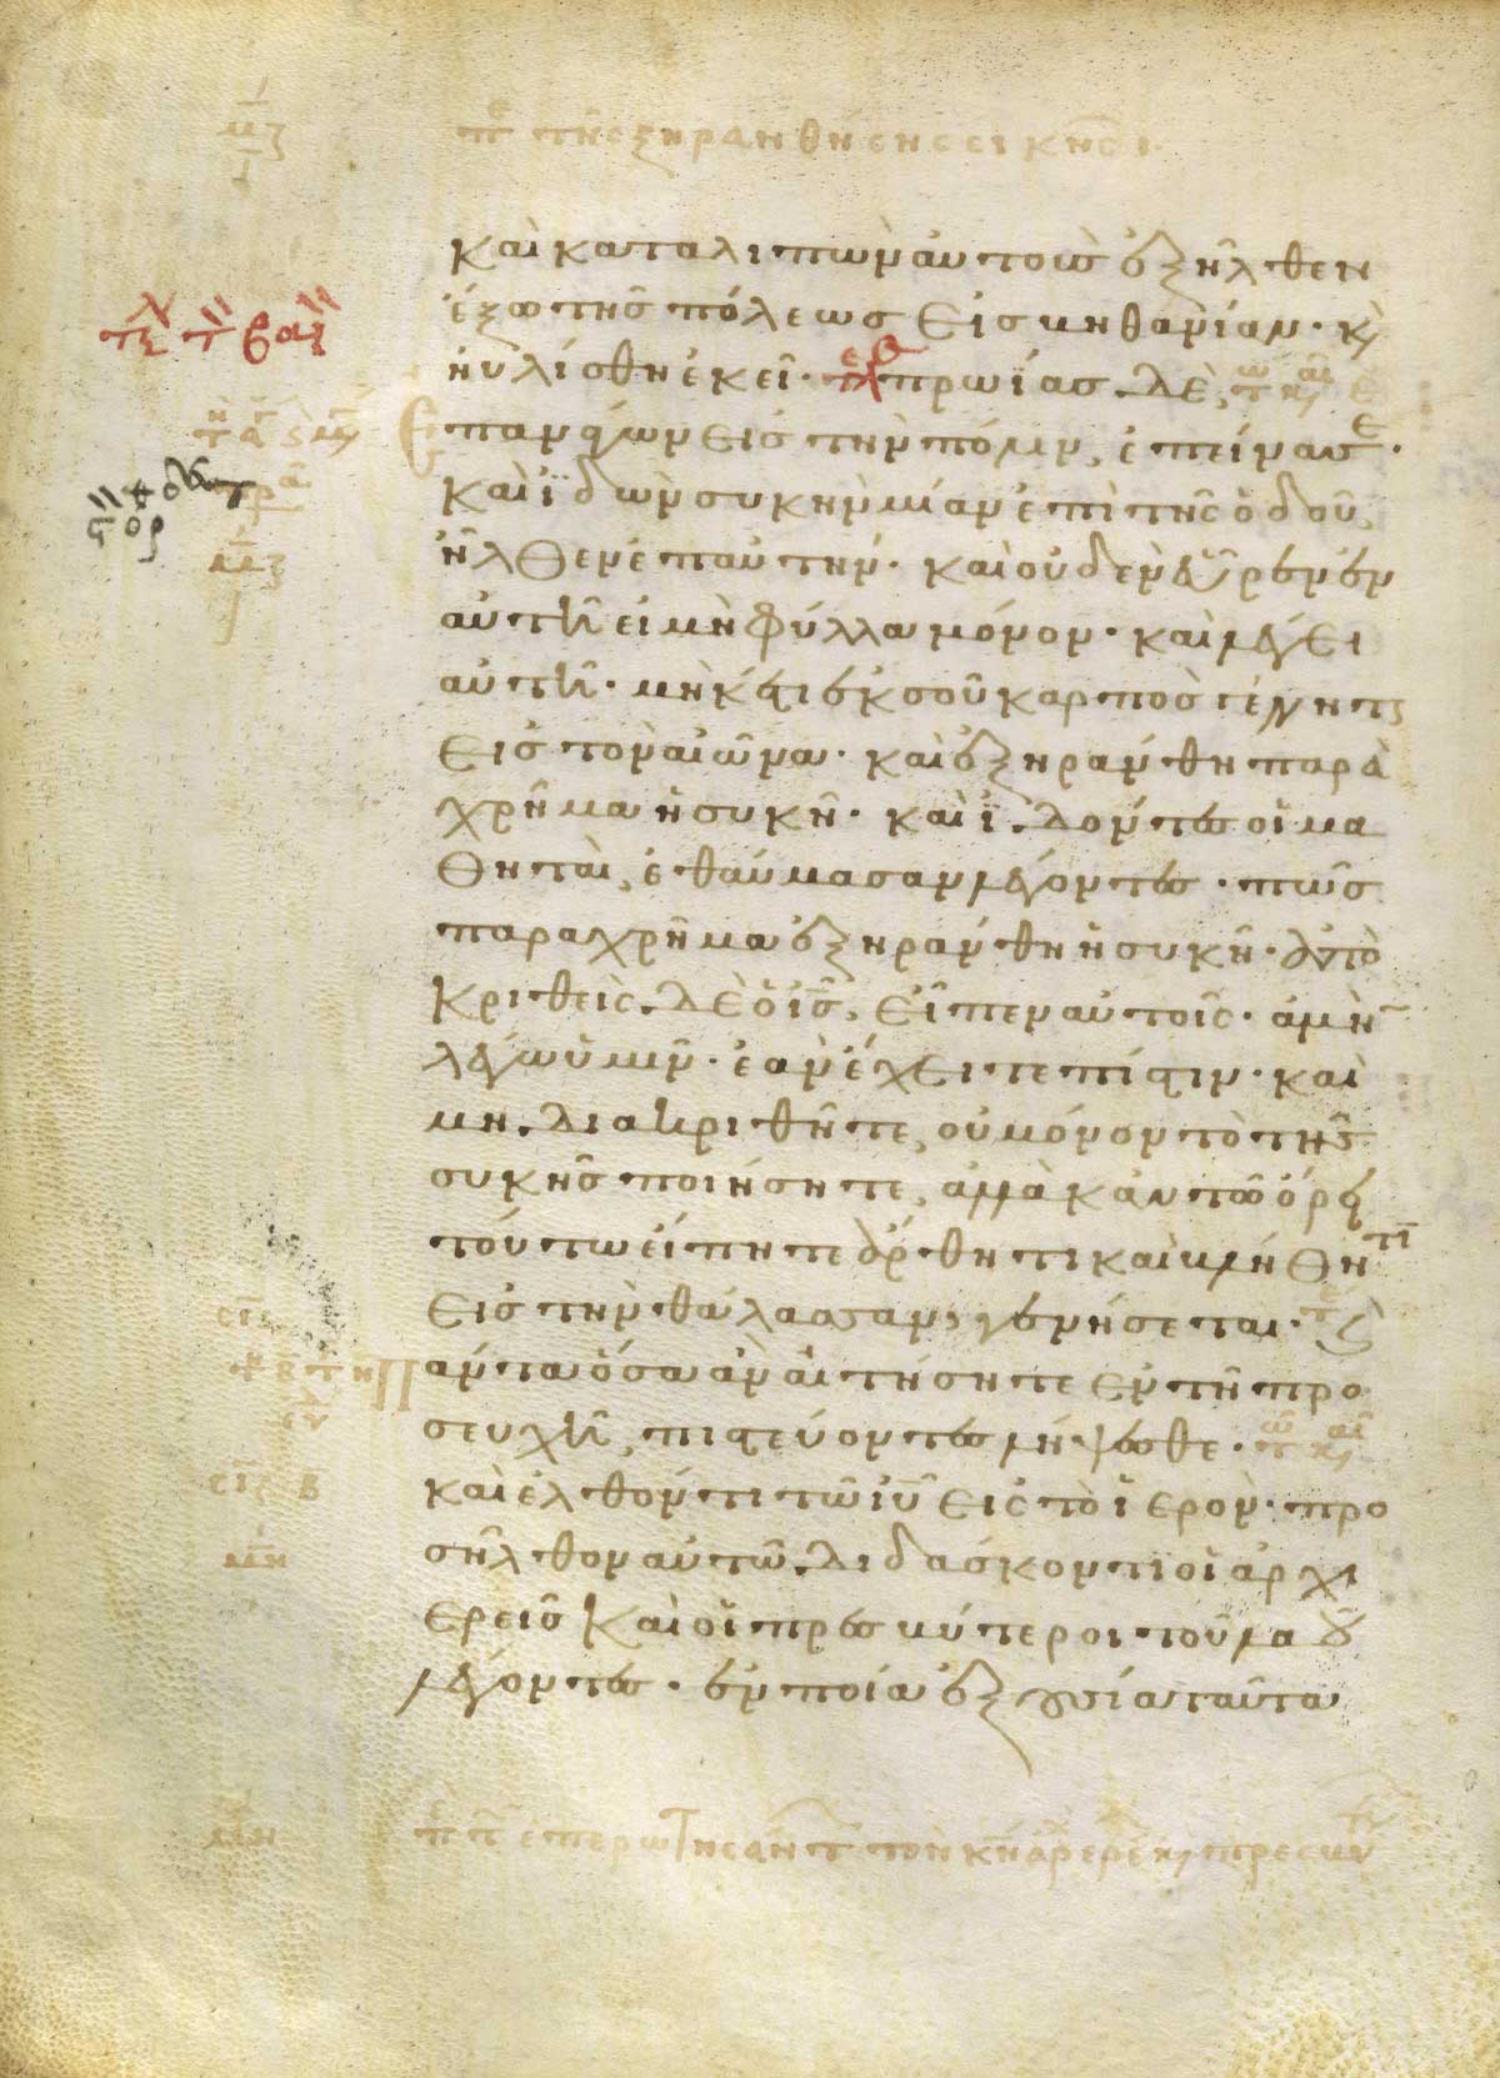 τῆς ξηρανθήσης συκῆς
καὶ καταλιπὼν αὐτοὺς ἐξῆλθεν
ἔξω τῆς πόλεως εἰς βηθανίαν· κ̀
ηὐλίσθη ἐκεῖ· πρωΐας δὲ,
ἐπαναγων εἰς τὴν πόλιν, ἐπείνασε·
καὶ ἰδὼν συκὴν μίαν ἐπὶ τῆς ὁδοῦ,
ἦλθεν ἐπ αὐτήν· καὶ οὐδὲν εὗρεν ἐν
αὐτῆ εἰ μὴ φύλλα μόνον· καὶ λέγει
αὐτῆ· μηκέτι ἐκ σοῦ καρπὸς γένηται
εἰς τὸν αἰῶνα· καὶ ἐξηράνθη παρα
χρῆμα ἡ συκῆ· καὶ ἰδόντες οἱ μα
θηταὶ, ἐθαύμασαν λέγοντες· πῶς
παραχρῆμα ἐξηράνθη ἡ συκῆ· ἀπο
κριθεὶς δὲ ὁ ις̅, εἶπεν αὐτοῖς· ἀμὴν
λέγω ὑμῖν· ἐὰν ἔχειτε πίστιν· καὶ
μὴ διακριθῆτε, οὐ μόνον τὸ τῆς
συκῆς ποιήσητε, ἀλλὰ κἂν τῶ ὄρει
τούτω εἴπητε ἄρθητι καὶ βλήθητι
εἰς τὴν θάλασσαν, γενήσεται·
πάντα ὅσα ἂν αἰτήσητε ἐν τῆ προ
σευχῆ, πιστεύοντες λήψεσθε·
καὶ ἐλθόντι τῶ ιυ̅ εἰς τὸ ἱερὸν· προ
σῆλθον αὐτῶ διδάσκοντι οἱ ἀρχι
ερεῖς καὶ οἱ πρεσβύτεροι τοῦ λαοῦ
λέγοντες· ἐν ποία ἐξουσία ταῦτα